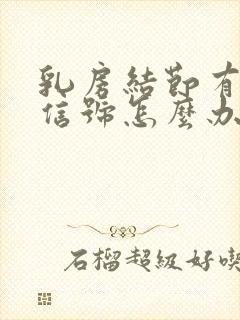 乳房結節有
信號怎麼办
石榴超級好喫